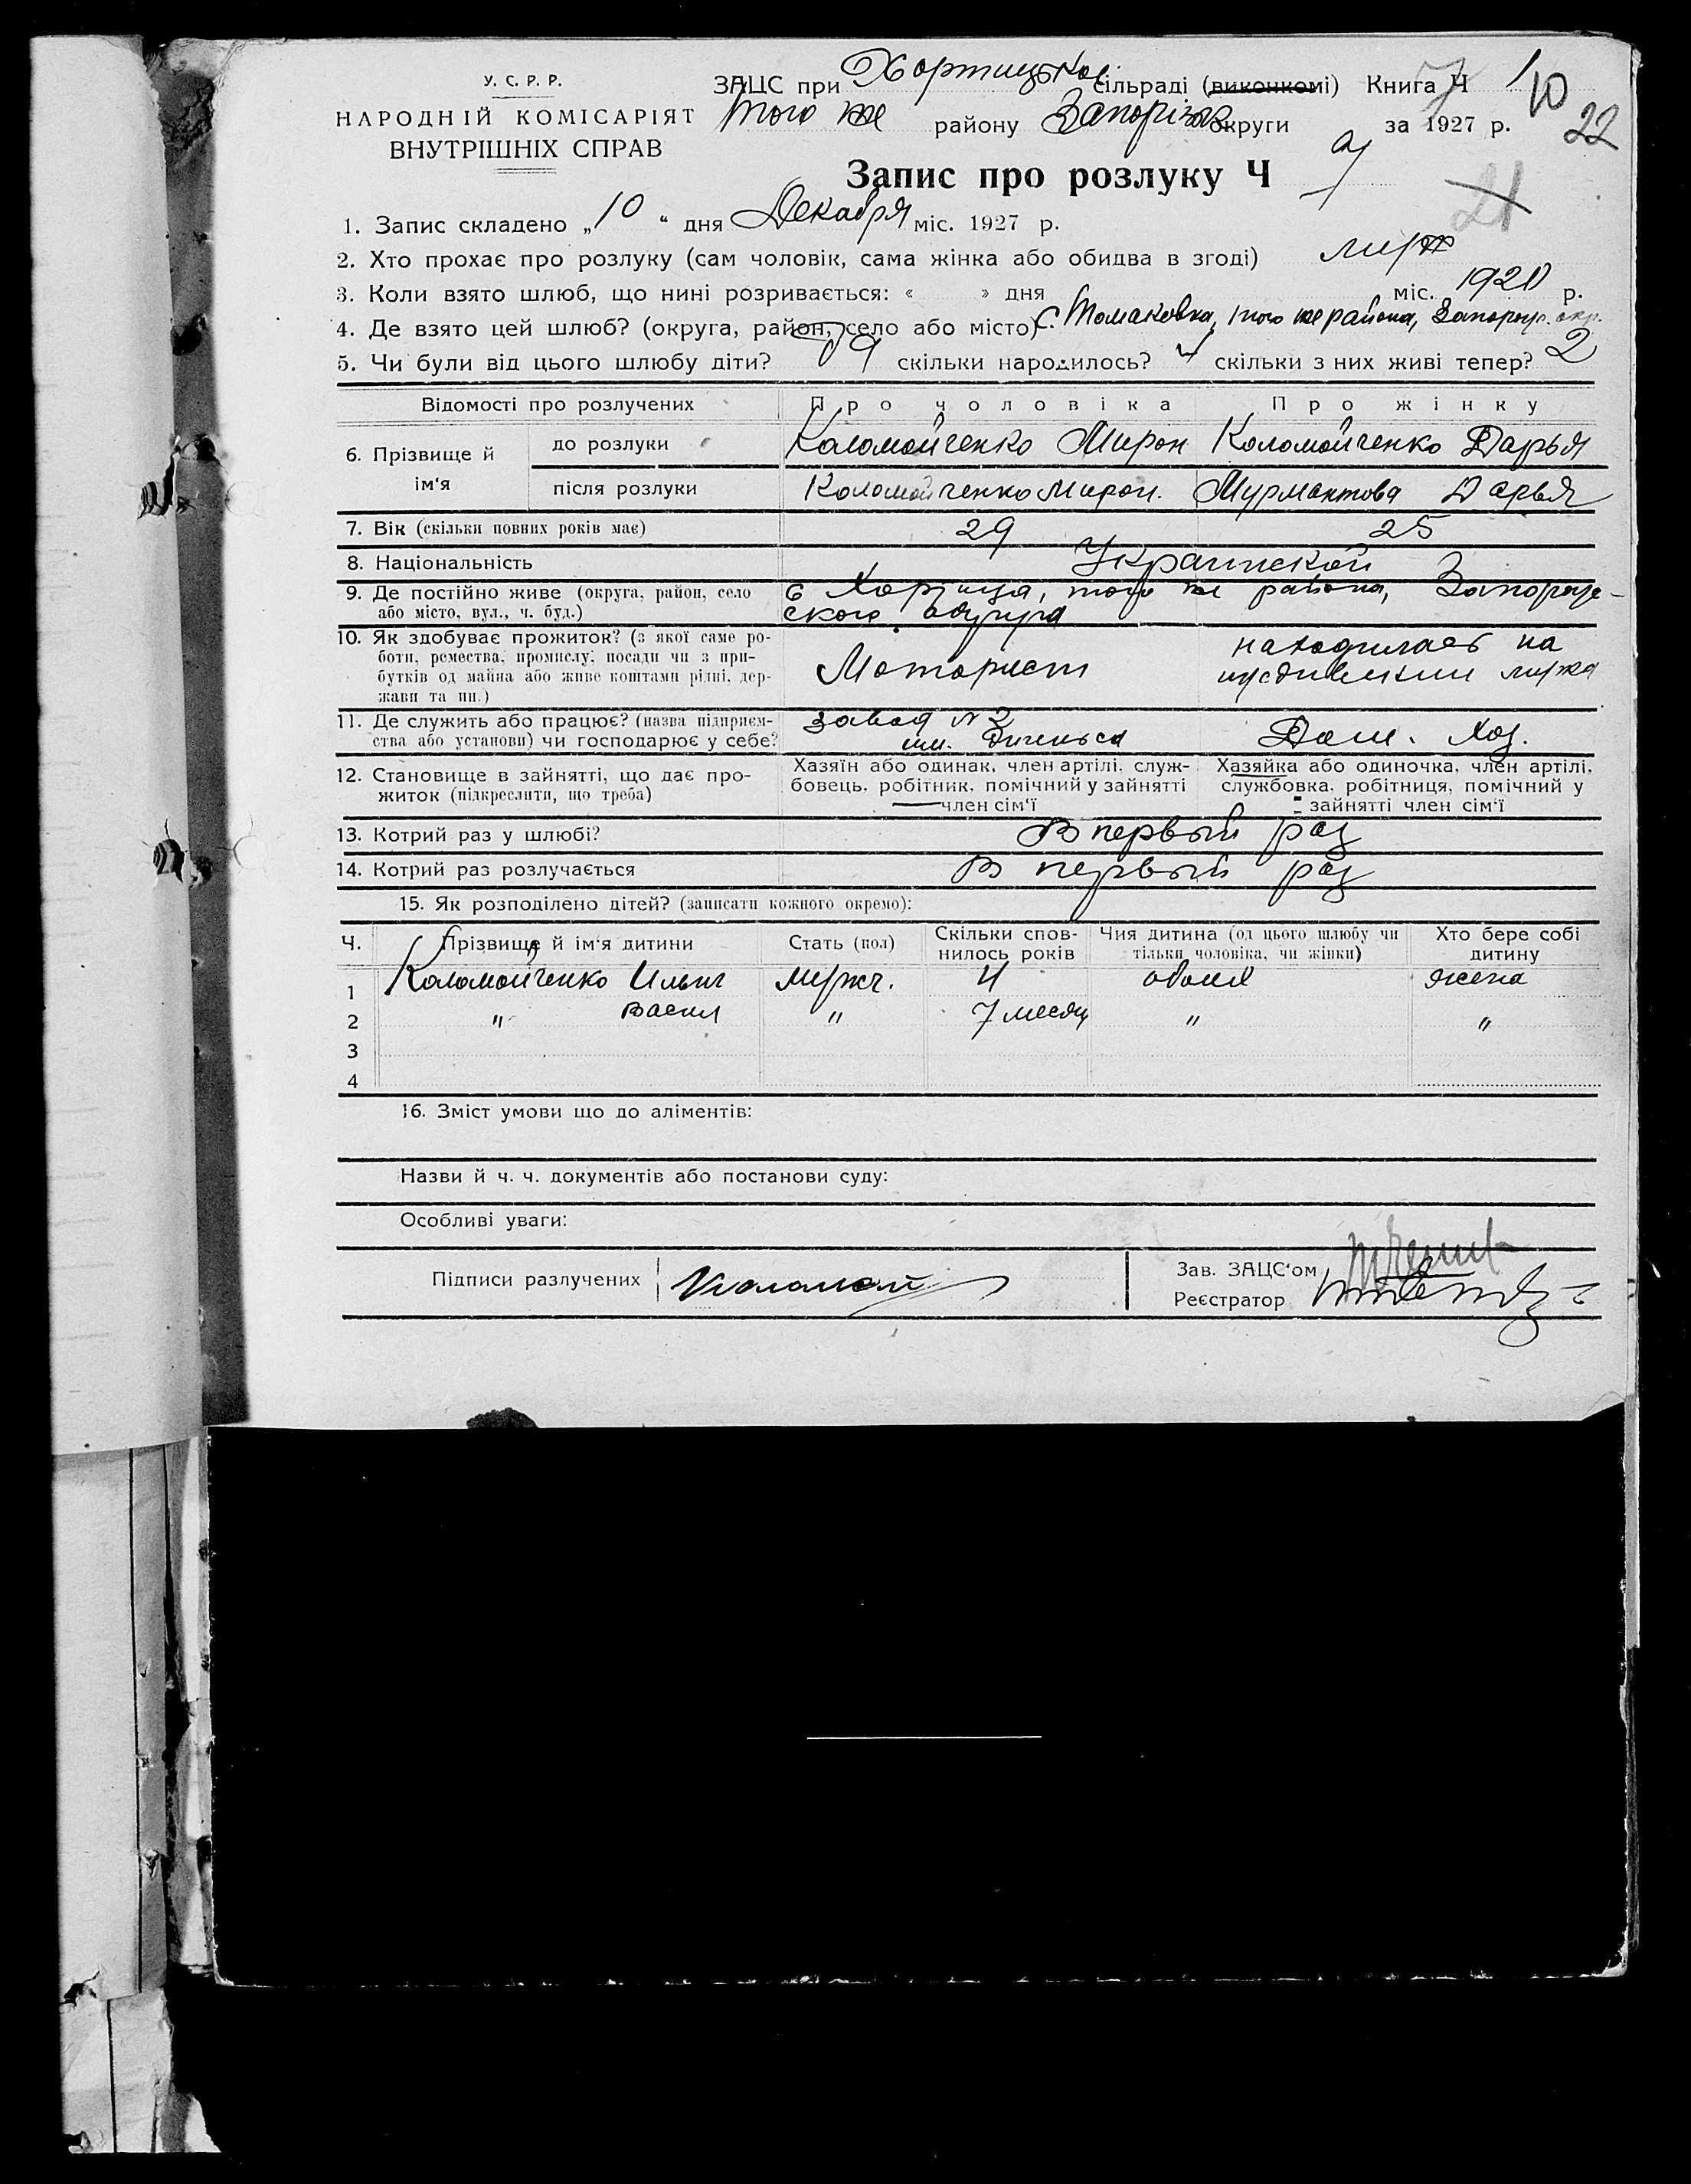 У. С. Р. Р.
НАРОДНІЙ КОМІСАРІЯТ
ВНУТРІШНІХ СПРАВ
ЗАЦС при Хортицькой сільраді (виконкомі) Книга Ч 7 10
того же району Запоріз. округи за 1927 р. 22
Запис про розлуку Ч
21
1. Запис складено „10“ дня Декабря міс. 1927 р.
2. Хто прохає про розлуку (сам чоловік, сама жінка або обидва в згоді) муж
3. Коли взято шлюб, що нині розривається: « » дня міс. 1920 р.
4. Де взято цей шлюб? (округа, район, село або місто) с. Томаковка, того же района, Запорож. окр.
5. Чи були від цього шлюбу діти? скільки народилось? 4 скільки з них живі тепер? 2
Відомості про розлучених Про чоловіка Про жінку
6. Прізвище й ім‘я до розлуки Коломойченко Мирон Коломойченко Дарья
після розлуки Коломойченко Мирон. Дарья
7. Вік (скільки повних років має) 29 25
8. Національність Украинской
9. Де постійно живе (округа, район, село С Хортица, того же района, Запорож-
або місто, вул., ч. буд.) ского округа
10. Як здобуває прожиток? (з якої саме ро- находилась на
боти, ремества, промислу, посади чи з при- Моторист иждивении мужа
бутків од майна або живе коштами рідні, дер-
жави та ин.)
11. Де служить або працює? (назва підприєм- завод №2
ства або установи) чи господарює у себе? им. Енгельса Дом. Хоз.
12. Становище в зайнятті, що дає про- Хазяїн або одинак, член артілі, служ- Хазяйка або одиночка, член артілі,
житок (підкреслити, що треба) бовець, робітник, помічний у зайнятті службовка, робітниця, помічний у
член сім‘ї зайнятті член сім‘ї
13. Котрий раз у шлюбі? В первый раз
14. Котрий раз розлучається В первый раз
15. Як розподілено дітей? (записати кожного окремо):
Ч. Прізвище й ім‘я дитини Стать (пол) Скільки спов- Чия дитина (од цього шлюбу чи Хто бере собі
нилось років тільки чоловіка, чи жінки) дитину
1 Коломойченко Ильич мужч. 4 обоих жена
2 " Васил " 7 месяц " "
3
4
16. Зміст умови що до аліментів:
Назви й ч. ч. документів або постанови суду:
Особливі уваги:
Підписи разлучених Коломой
Зав. ЗАЦС‘ом
Реєстратор